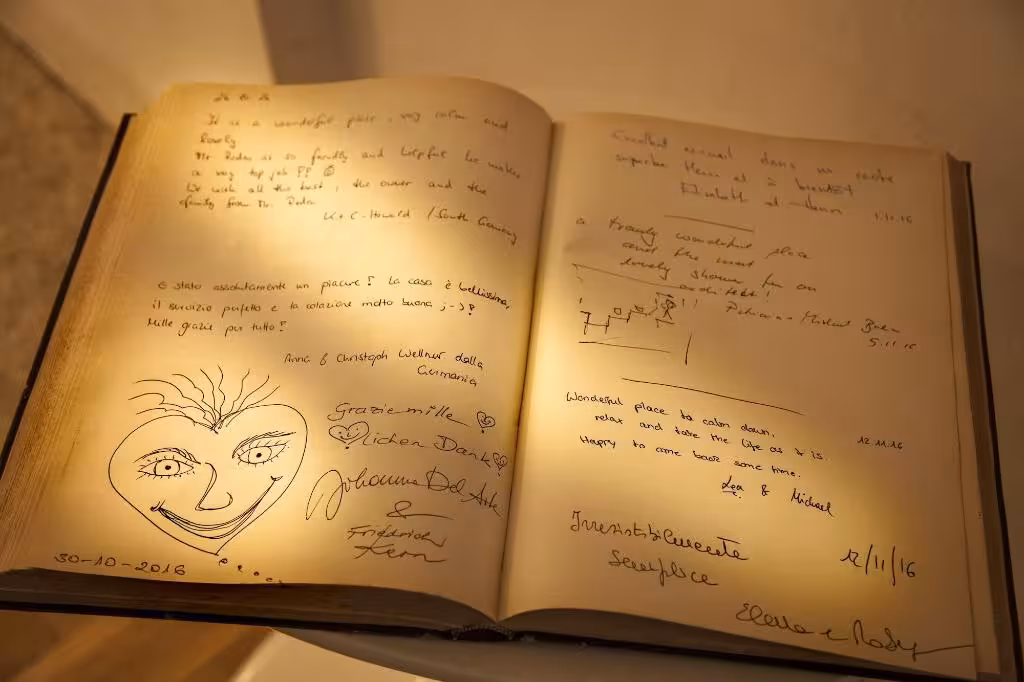 It is a wonderful place, very calm and
lovely.
Mr as so friendly and helpful he makes
a very top job !!
We wish all the best, the owner and the
family from Mr.
K + C / South Germany
E' stato assolutamente un piacere! La casa è bellissima,
il servizio perfetto e la colazione molto buona ;-)!
Mille grazie per tutto!
Anna & Christoph Wellner dalla
Germania
Grazie mille
lichen Dank
Johanna Del
&
Friedrich
Kern
30-10-2016
dans un cadre
superbe et à bientôt
et
1.11.16
a truly wonderful place
and the most
lovely shower for an
architect!
Michael
5.11.16
Wonderful place to calm down,
relax and take the life as it is.
12.11.16
Happy to come back some time.
Lea & Michael
Irresistibilmente
semplice
12/11/16
Elena e